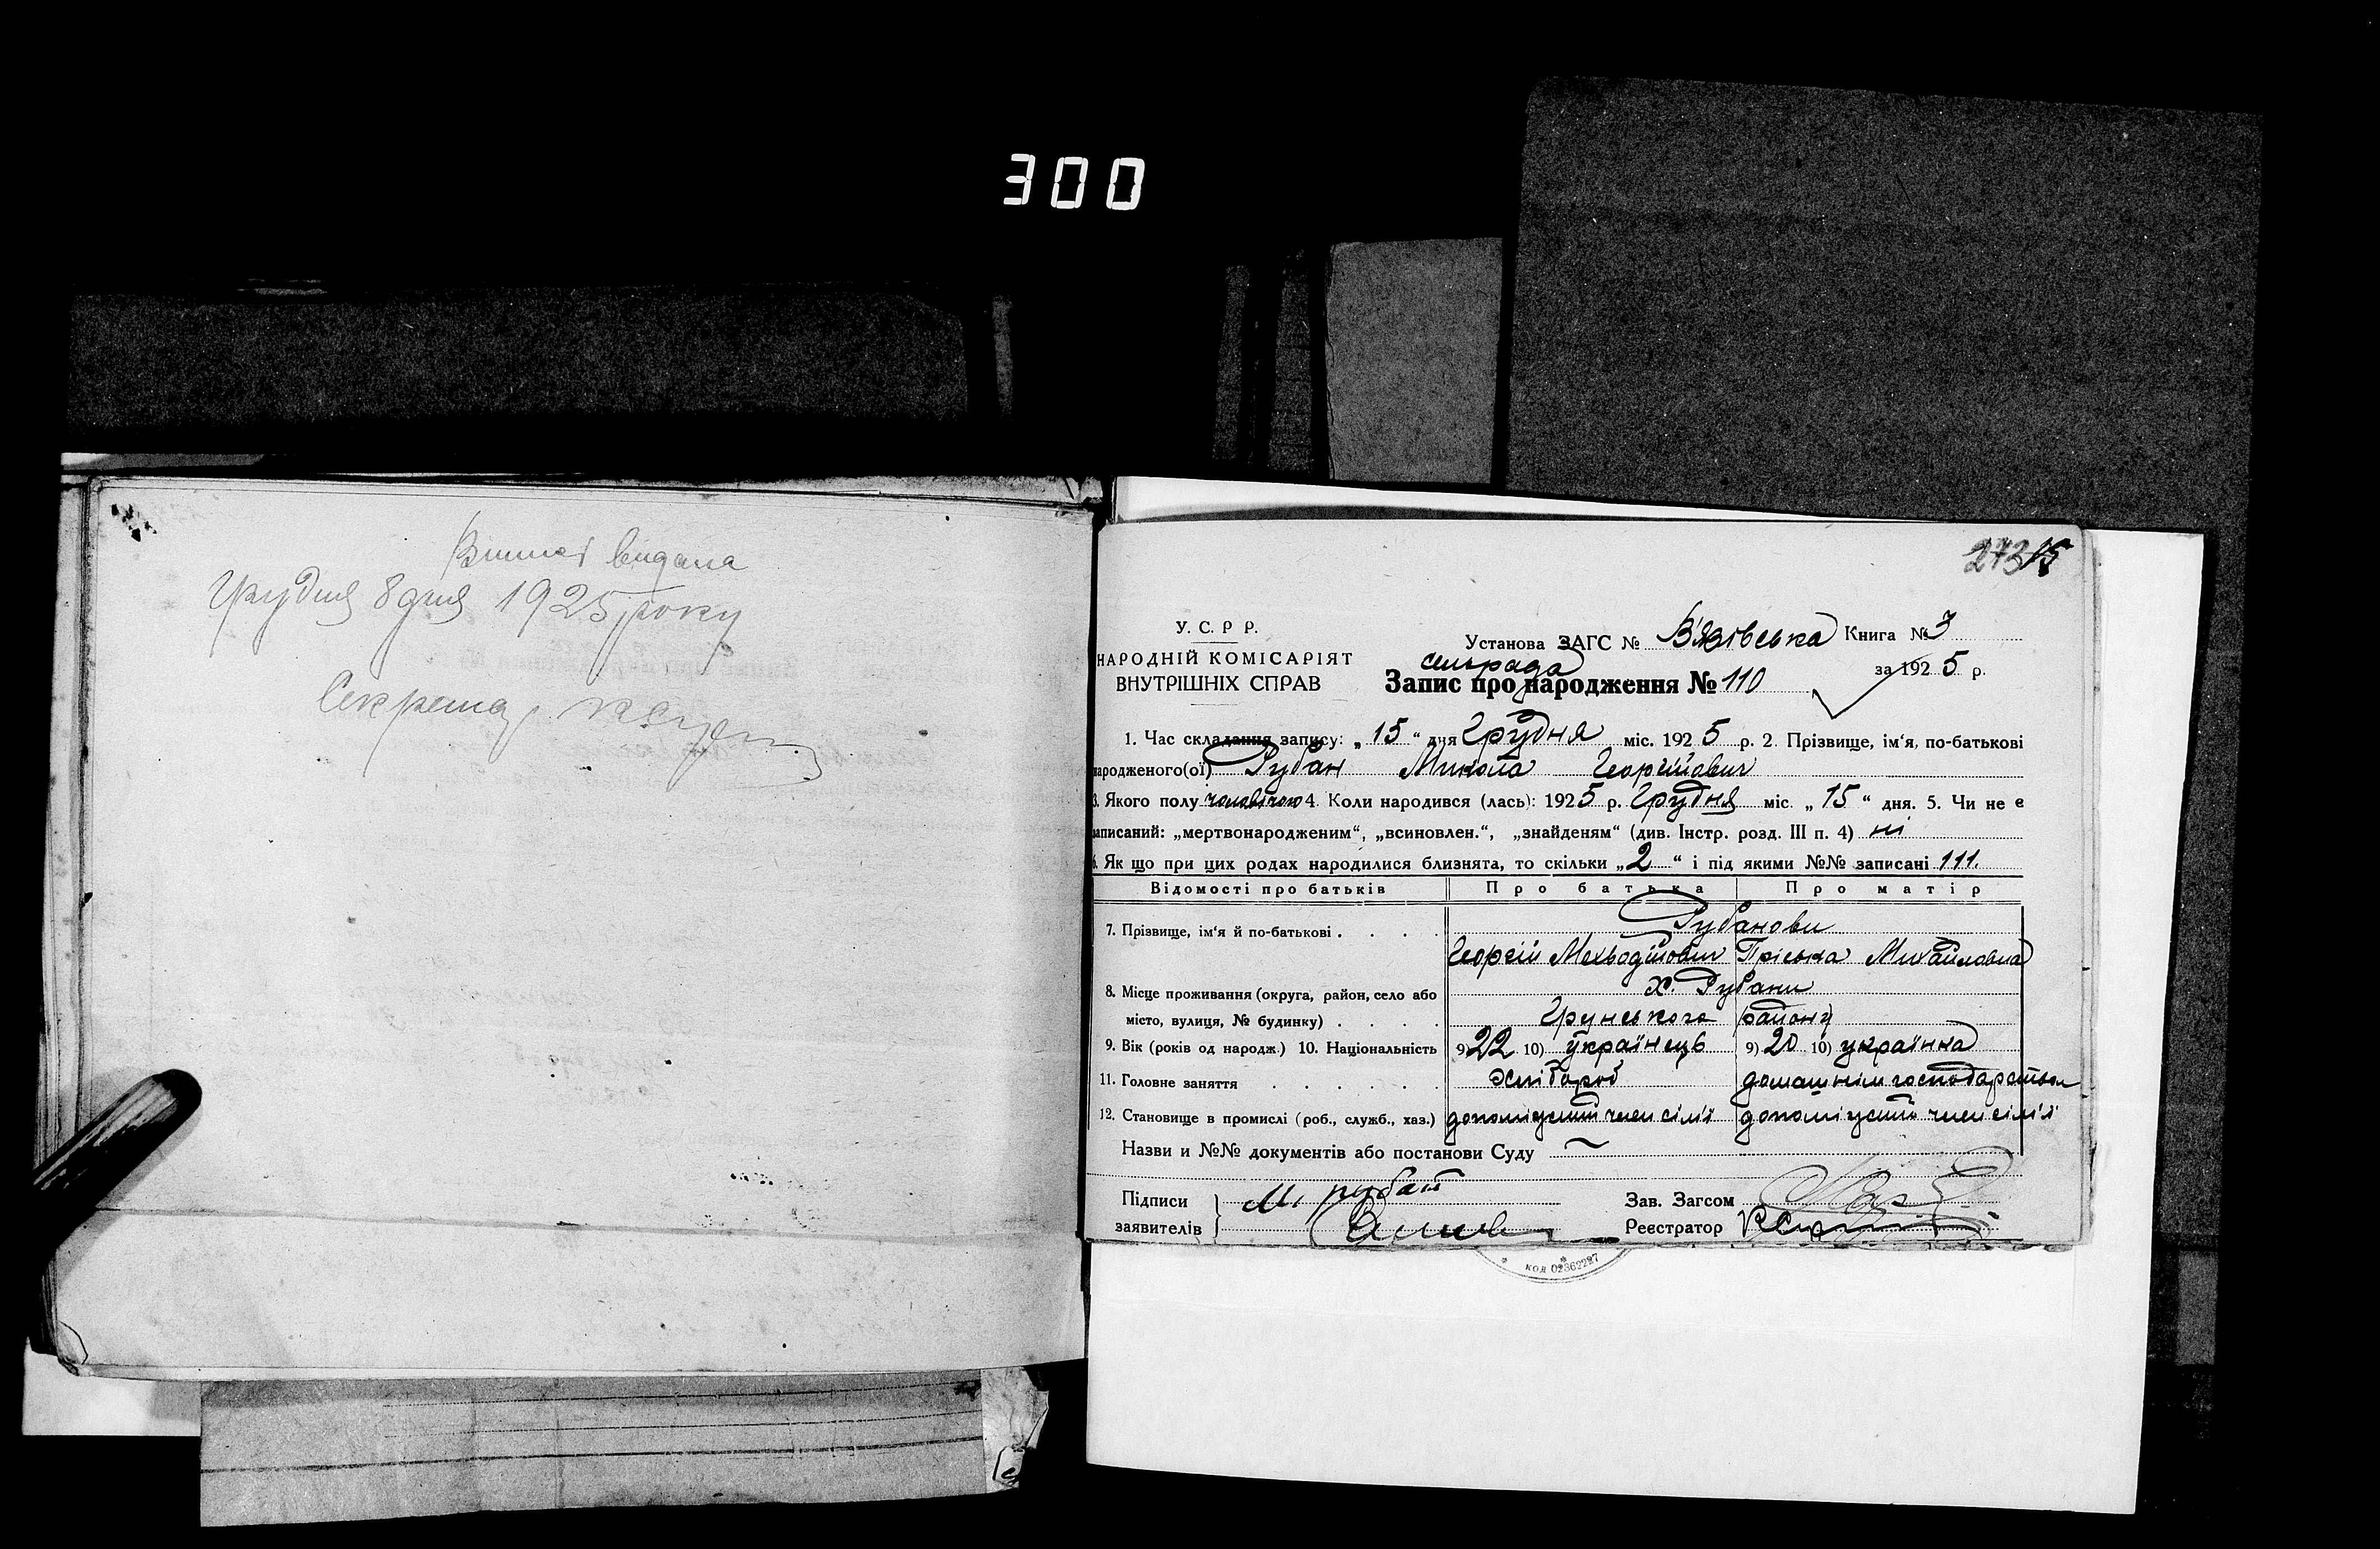 300
видана
Грудня 8 дня 1925 року
Секретар
273
15
У. С. Р Р.
НАРОДНІЙ КОМІСАРІЯТ
ВНУТРІШНІХ СПРАВ
Установа ЗАГС № В'язівська Книга № 3
сельрада
за 1925 р.
Запис про народження № 110
1. Час складання запису: „ 15 “ дня Грудня міс. 1925 р. 2. Прізвище, ім‘я, по-батькові
народженого(ої) Рубан Микола Георгійович
3. Якого полу чоловічого 4. Коли народився (лась): 1925 р. Грудня міс. „ 15 “ дня. 5. Чи не є
записаний: „мертвонародженим“, „всиновлен.“, „знайденям“ (див. Інстр. розд. III п. 4) ні
6. Як що при цих родах народилися близнята, то скільки „ 2 “ і під якими №№ записані 111.
Відомості про батьків Про батька Про матір
7. Прізвище, ім‘я й по-батькові . . . . Рубанови
Георгій Мехводійович Пріська Михайловна
8. Місце проживання (округа, район, село або х. Рубани
місто, вулиця, № будинку) . . . . Грунського району
9. Вік (років од народж.) 10. Національність 9) 22 10) українець 9) 20 10) українка
11. Головне заняття . . . . . . хлібороб домашнім господарством
12. Становище в промислі (роб., служб., хаз.) допоміжний член сім'ї допоміжний член сім'ї
Назви и №№ документів або постанови Суду
Підписи М. рубан Зав. Загсом
заявителів Реєстратор
* код 02362227